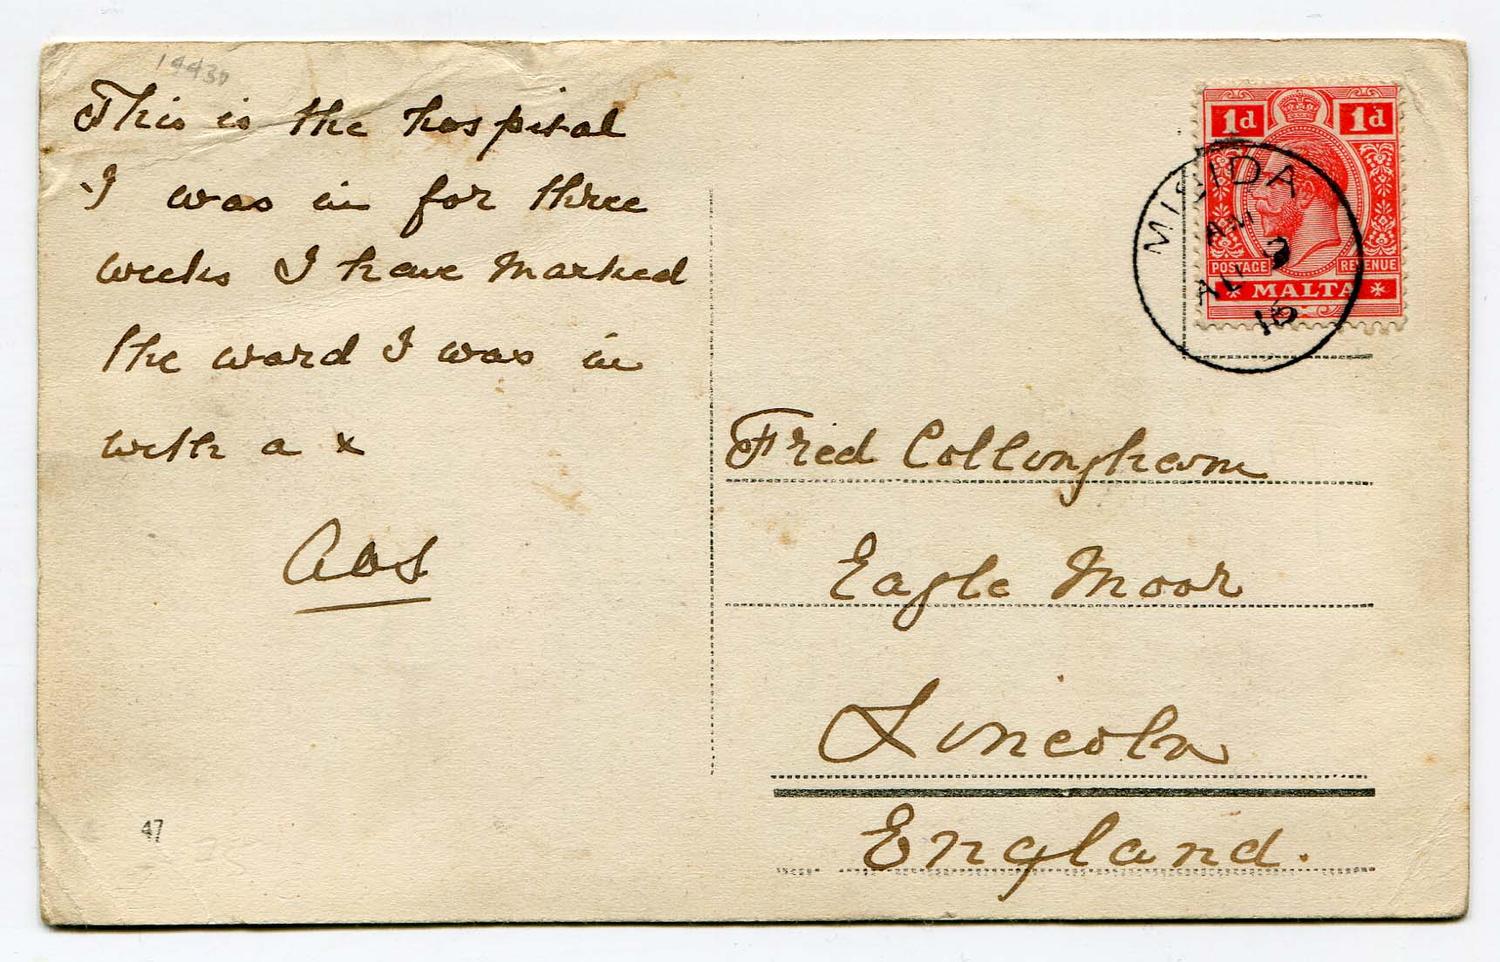 19430
This is the hospital
I was in for three
weeks I have marked
the ward I was in
with a x
AOS
47
1d 1d
POSTAGE REVENUE
MALTA
MISIDA
AM
AU 3
16
Fred Collingham
Eagle Moor
Lincoln
England.